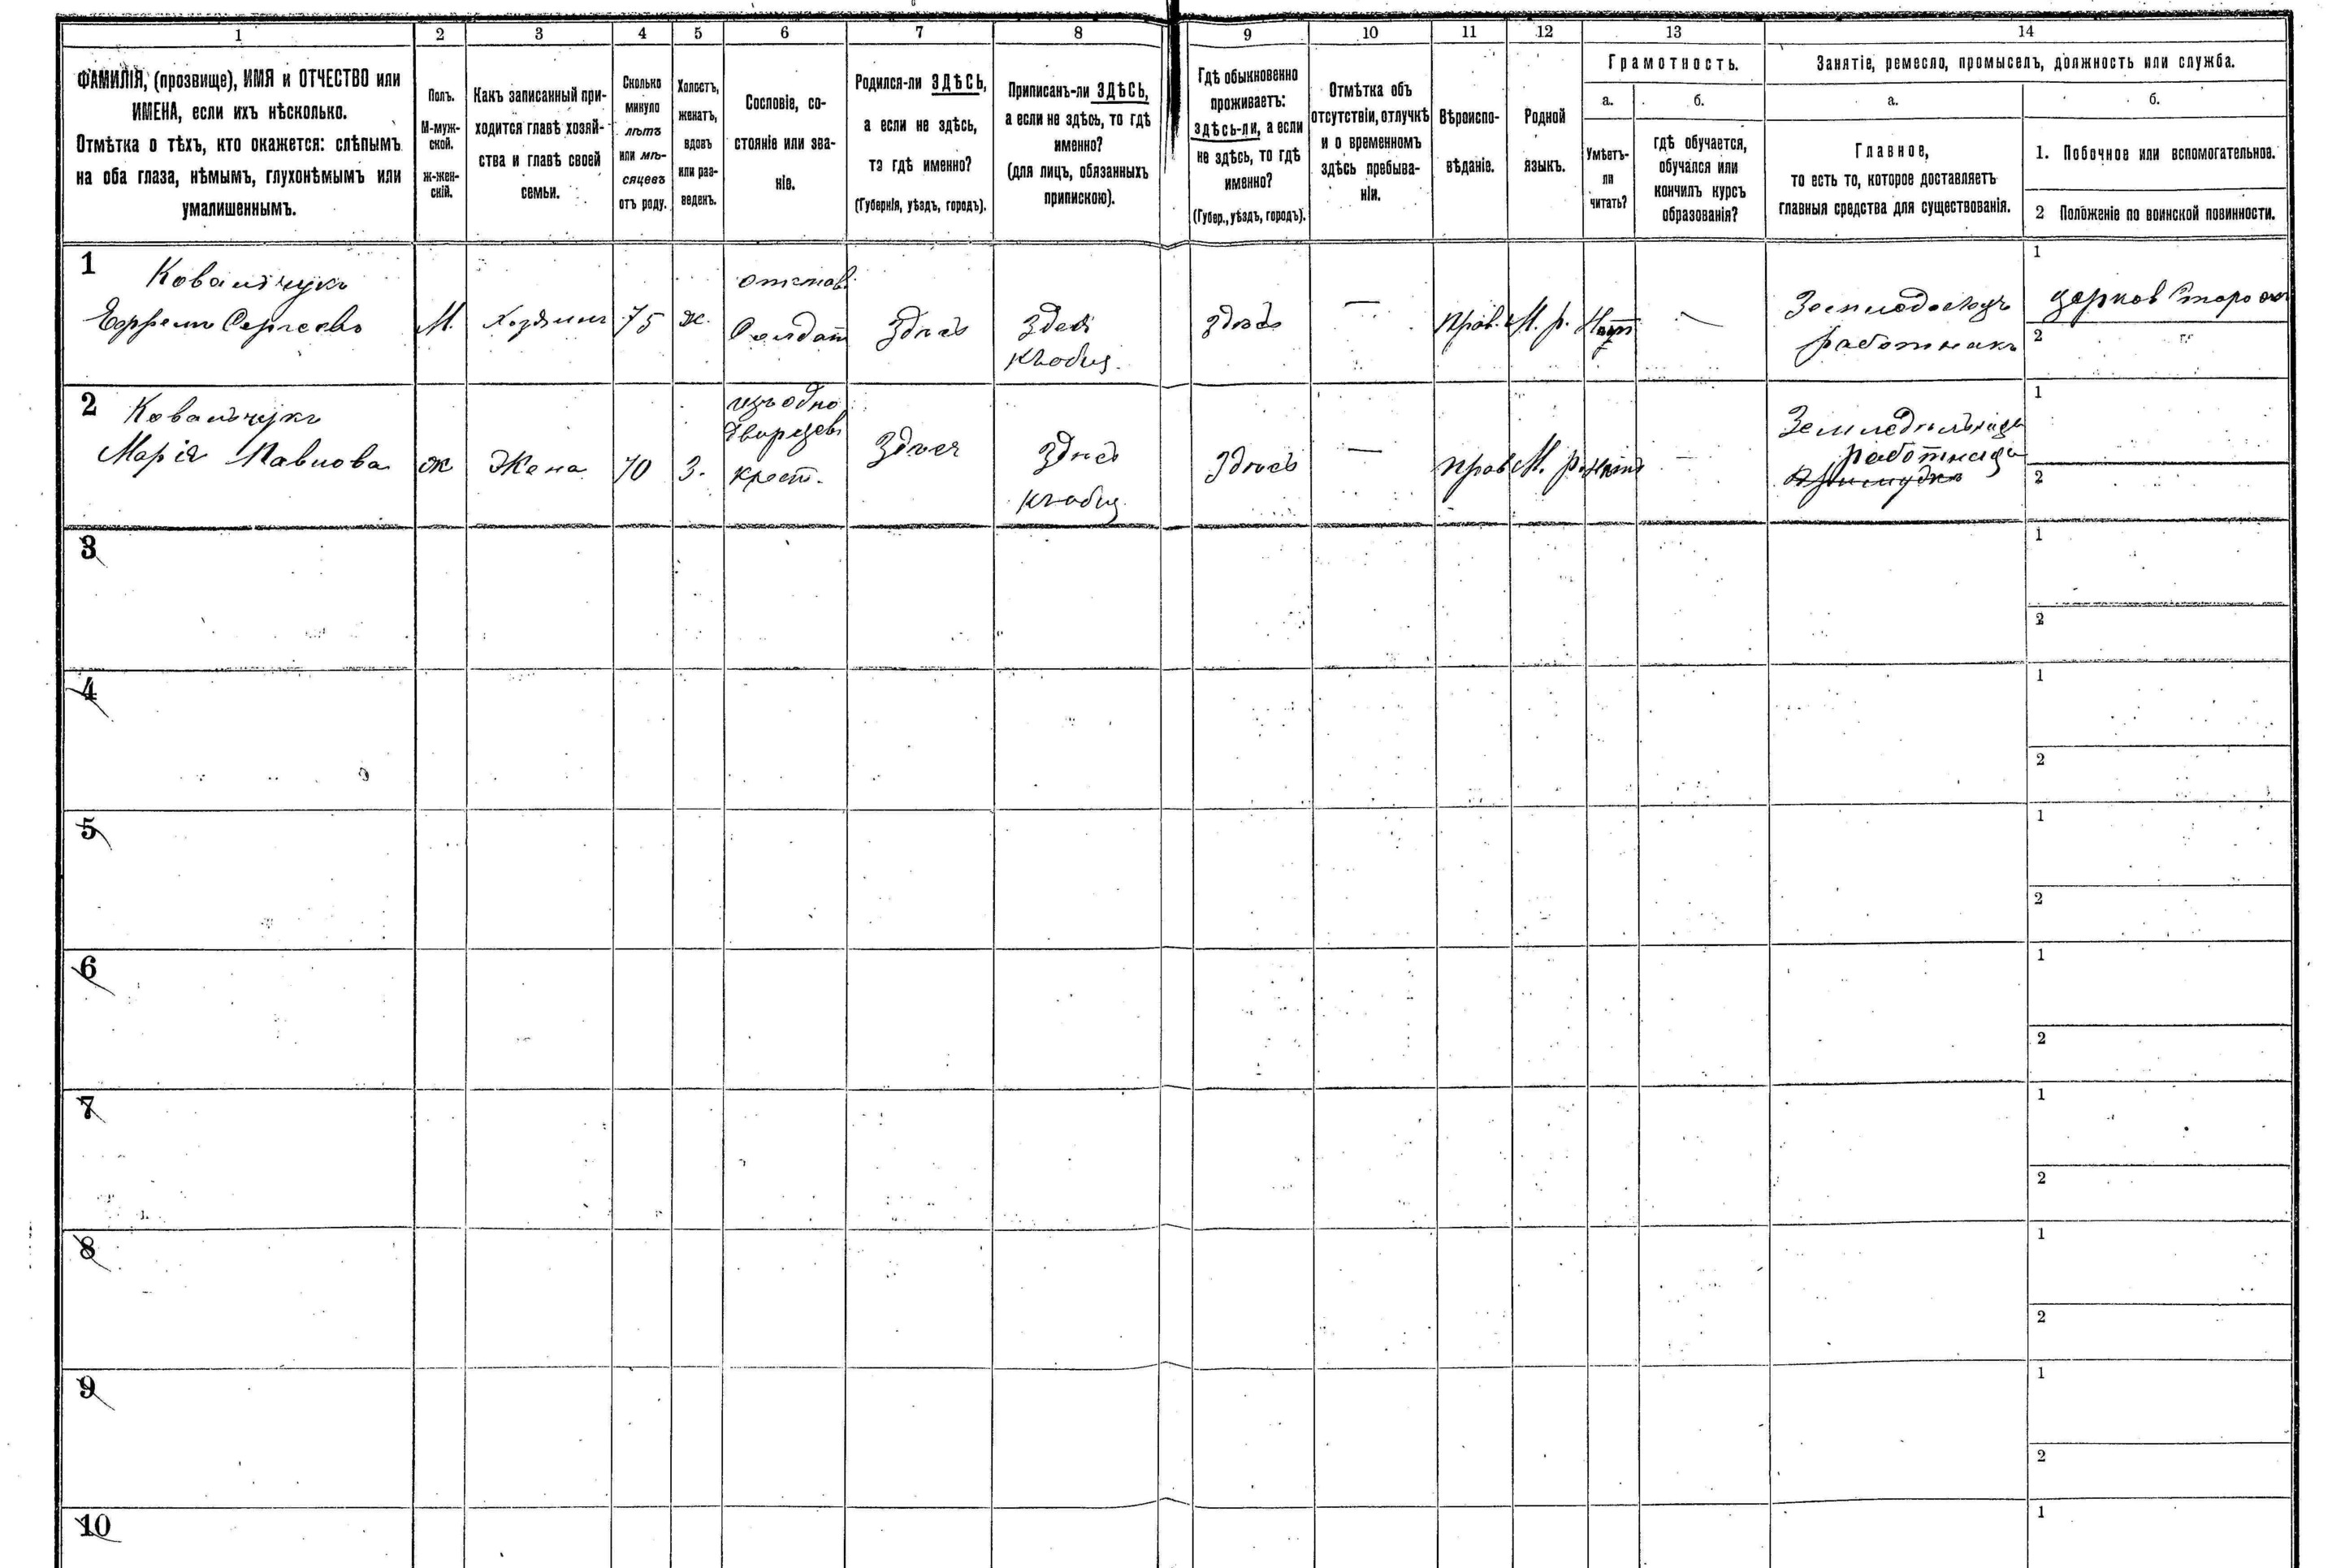 1 2 3 4 5 6 7 8 9 10 11 12 13 14
ФАМИЛІЯ, (прозвище), ИМЯ и ОТЧЕСТВО или
ИМЕНА, если ихъ нѣсколько.
Отмѣтка о тѣхъ, кто окажется: слѣпымъ
на оба глаза, нѣмымъ, глухонѣмымъ или
умалишеннымъ.
Полъ.
М-муж-
ской.
ж-жен-
скій.
Какъ записанный при-
ходится главѣ хозяй-
ства и главѣ своей
семьи.
Сколько
минуло
лѣтъ
или мѣ-
сяцевъ
отъ роду.
Холостъ,
женатъ,
вдовъ
или раз-
веденъ.
Сословіе, со-
стояніе или зва-
ніе.
Родился-ли ЗДѢСЬ,
а если не здѣсь,
то гдѣ именно?
(Губернія, уѣздъ, городъ).
Приписанъ-ли ЗДѢСЬ,
а если не здѣсь, то гдѣ
именно?
(для лицъ, обязанныхъ
припискою).
Гдѣ обыкновенно
проживаетъ:
здѣсь-ли, а если
не здѣсь, то гдѣ
именно?
(Губер., уѣздъ, городъ).
Отмѣтка объ
отсутствіи, отлучкѣ
и о временномъ
здѣсь пребыва-
ніи.
Вѣроиспо-
вѣданіе.
Родной
языкъ.
Грамотность.
а.
Умѣетъ-
ли
читать?
б.
гдѣ обучается,
обучался или
кончилъ курсъ
образованія?
Занятіе, ремесло, промыселъ, должность или служба.
а.
Главное,
то есть то, которое доставляетъ
главныя средства для существованія.
б.
1. Побочное или вспомогательное.
2 Положеніе по воинской повинности.
1
Ковальчукъ
Ефремъ Сергеевъ
М.
Хозяинъ
75
ж.
отстав.
Солдат
Здѣсь
Здесь
Здѣсь
—
прав.
М. р.
Нѣтъ
—
работникъ
1
2
2
Ковальчукъ
Марія Павлова
ж
Жена
70
З.
изъ одно
дворцевъ
крест.
Здѣсь
Здѣсь
Здѣсь
—
прав
М. р.
Нѣтъ
—
работница
1
2
3
1
2
4
1
2
5
1
2
6
1
2
7
1
2
8
1
2
9
1
2
10
1